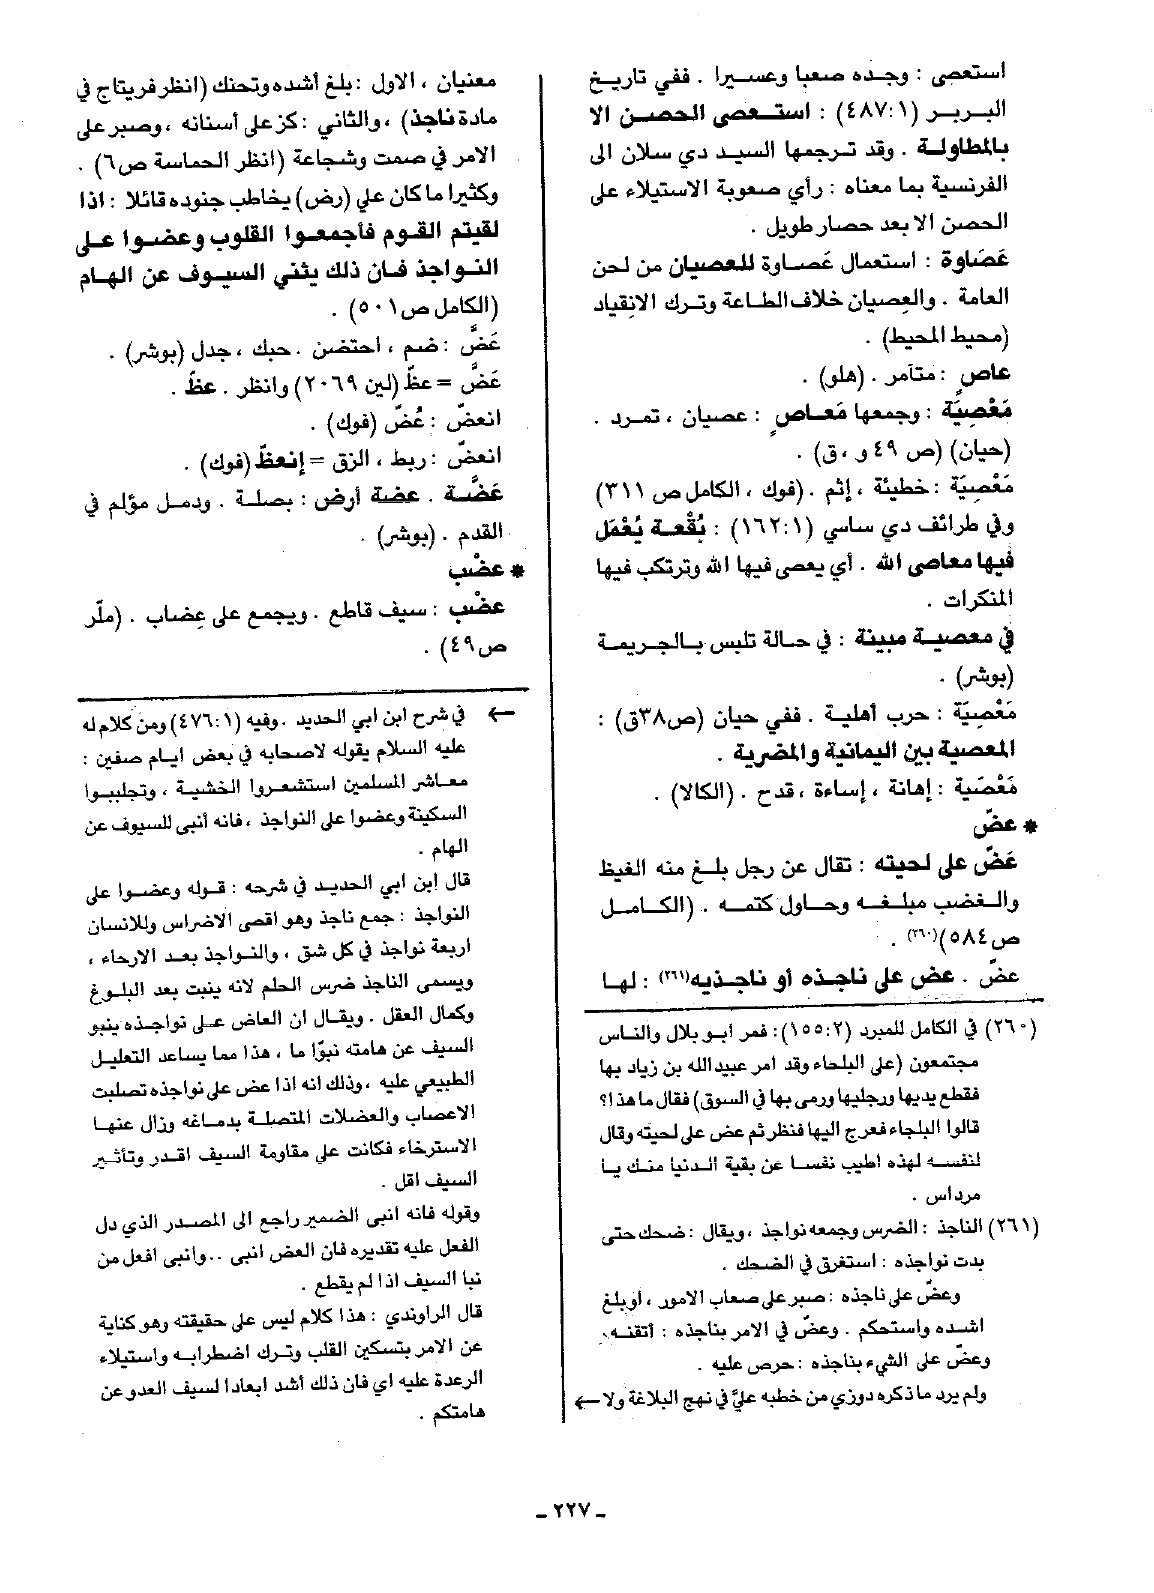 استعصى : وجده صعبا وعسيرا . ففي تاريخ
البربر (١ : ٤٨٧) : استعصى الحصن الا
بالمطاولة . وقد ترجمها السيد دي سلان الى
الفرنسية بما معناه : رأي صعوبة الاستيلاء على
الحصن الا بعد حصار طويل .
عَصَاوة : استعمال عَصاوة للعصيان من لحن
العامة . والعصيان خلاف الطاعة وترك الانقياد
(محيط المحيط) .
عاصٍ : متآمر . (هلو) .
مَعْصِيَة : وجمعها مَعاصٍ : عصيان ، تمرد .
(حيان) (ص ٤٩ و ، ق) .
مَعْصِيَة : خطيئة ، إثم . (فوك ، الكامل ص ٣١١)
وفي طرائف دي ساسي (١ : ١٦٢) : بُقْعة يُعْمَل
فيها معاصى الله . أي يعصى فيها الله وترتكب فيها
المنكرات .
في معصية مبينة : في حالة تلبس بالجريمة
(بوشر) .
مَعْصِيَة : حرب أهلية . ففي حيان (ص٣٨ق) :
المعصية بين اليمانية والمضرية .
مَعْصَية : إهانة ، إساءة ، قدح . (الكالا) .
* عضّ
عَضّ على لحيته : تقال عن رجل بلغ منه الغيظ
والغضب مبلغه وحاول كتمه . (الكامل
ص ٥٨٤)(٢٦٠) .
عضّ . عض على ناجذه أو ناجذيه(٢٦١) : لها
(٢٦٠) في الكامل للمبرد (٢ : ١٥٥) : فمر ابو بلال والناس
مجتمعون (على البلجاء وقد امر عبيد الله بن زياد بها
فقطع يديها ورجليها ورمى بها في السوق) فقال ما هذا؟
قالوا البلجاء فعرج اليها فنظر ثم عض على لحيته وقال
لنفسه لهذه اطيب نفسا عن بقية الدنيا منك يا
مرداس .
(٢٦١) الناجذ : الضرس وجمعه نواجذ ، ويقال : ضحك حتى
بدت نواجذه : استغرق في الضحك .
وعضّ على ناجذه : صبر على صعاب الامور ، أو بلغ
اشده واستحكم . وعضّ في الامر بناجذه : أتقنه .
وعضّ على الشيء بناجذه : حرص عليه .
ولم يرد ما ذكره دوزي من خطبه عليّ في نهج البلاغة ولا ←
معنيان ، الاول : بلغ أشده وتحنك (انظر فريتاج في
مادة ناجذ) ، والثاني : كز على أسنانه ، وصبر على
الامر في صمت وشجاعة (انظر الحماسة ص٦) .
وكثيرا ما كان علي (رض) يخاطب جنوده قائلا : اذا
لقيتم القوم فأجمعوا القلوب وعضوا على
النواجذ فان ذلك يثني السيوف عن الهام
(الكامل ص٥٠١) .
عَضَّ : ضم ، احتضن . حبك ، جدل (بوشر) .
عَضَّ = عظّ (لين ٢٠٦٩) وانظر . عظّ .
انعضّ : عُضّ (فوك) .
انعضّ : ربط ، الزق = إنعظّ (فوك) .
عَضَّة . عضة أرض : بصلة . ودمل مؤلم في
القدم . (بوشر) .
* عضْب
عضْب : سيف قاطع . ويجمع على عِضاب . (ملّر
ص٤٩) .
← في شرح ابن ابي الحديد . وفيه (١ : ٤٧٦) ومن كلام له
عليه السلام يقوله لاصحابه في بعض ايام صفين :
معاشر المسلمين استشعروا الخشية ، وتجلببوا
السكينة وعضوا على النواجذ ، فانه أنبى للسيوف عن
الهام .
قال ابن ابي الحديد في شرحه : قوله وعضوا على
النواجذ : جمع ناجذ وهو اقصى الاضراس وللانسان
اربعة نواجذ في كل شق ، والنواجذ بعد الارحاء ،
ويسمى الناجذ ضرس الحلم لانه ينبت بعد البلوغ
وكمال العقل . ويقال ان العاض على نواجذه ينبو
السيف عن هامته نبوّا ما ، هذا مما يساعد التعليل
الطبيعي عليه ، وذلك انه اذا عض على نواجذه تصلبت
الاعصاب والعضلات المتصلة بدماغه وزال عنها
الاسترخاء فكانت على مقاومة السيف اقدر وتأثير
السيف اقل .
وقوله فانه انبى الضمير راجع الى المصدر الذي دل
الفعل عليه تقديره فان العض انبى .. وانبى افعل من
نبا السيف اذا لم يقطع .
قال الراوندي : هذا كلام ليس على حقيقته وهو كناية
عن الامر بتسكين القلب وترك اضطرابه واستيلاء
الرعدة عليه اي فان ذلك أشد ابعادا لسيف العدو عن
هامتكم .
ـ ٢٢٧ ـ